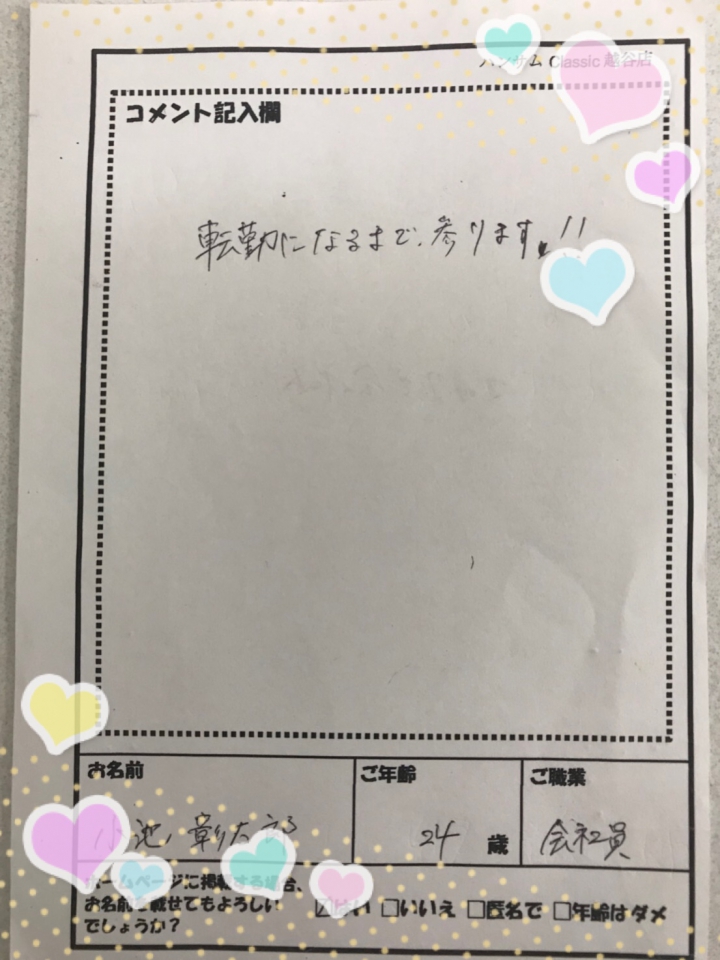 ハンサム Classic 越谷店
コメント記入欄
転勤になるまで、参ります。!!
お名前
ご年齢
ご職業
小池 彰太郎
24 歳
会社員
ホームページに掲載する場合、
お名前を載せてもよろしい
でしょうか?
☑はい □いいえ □匿名で □年齢はダメ